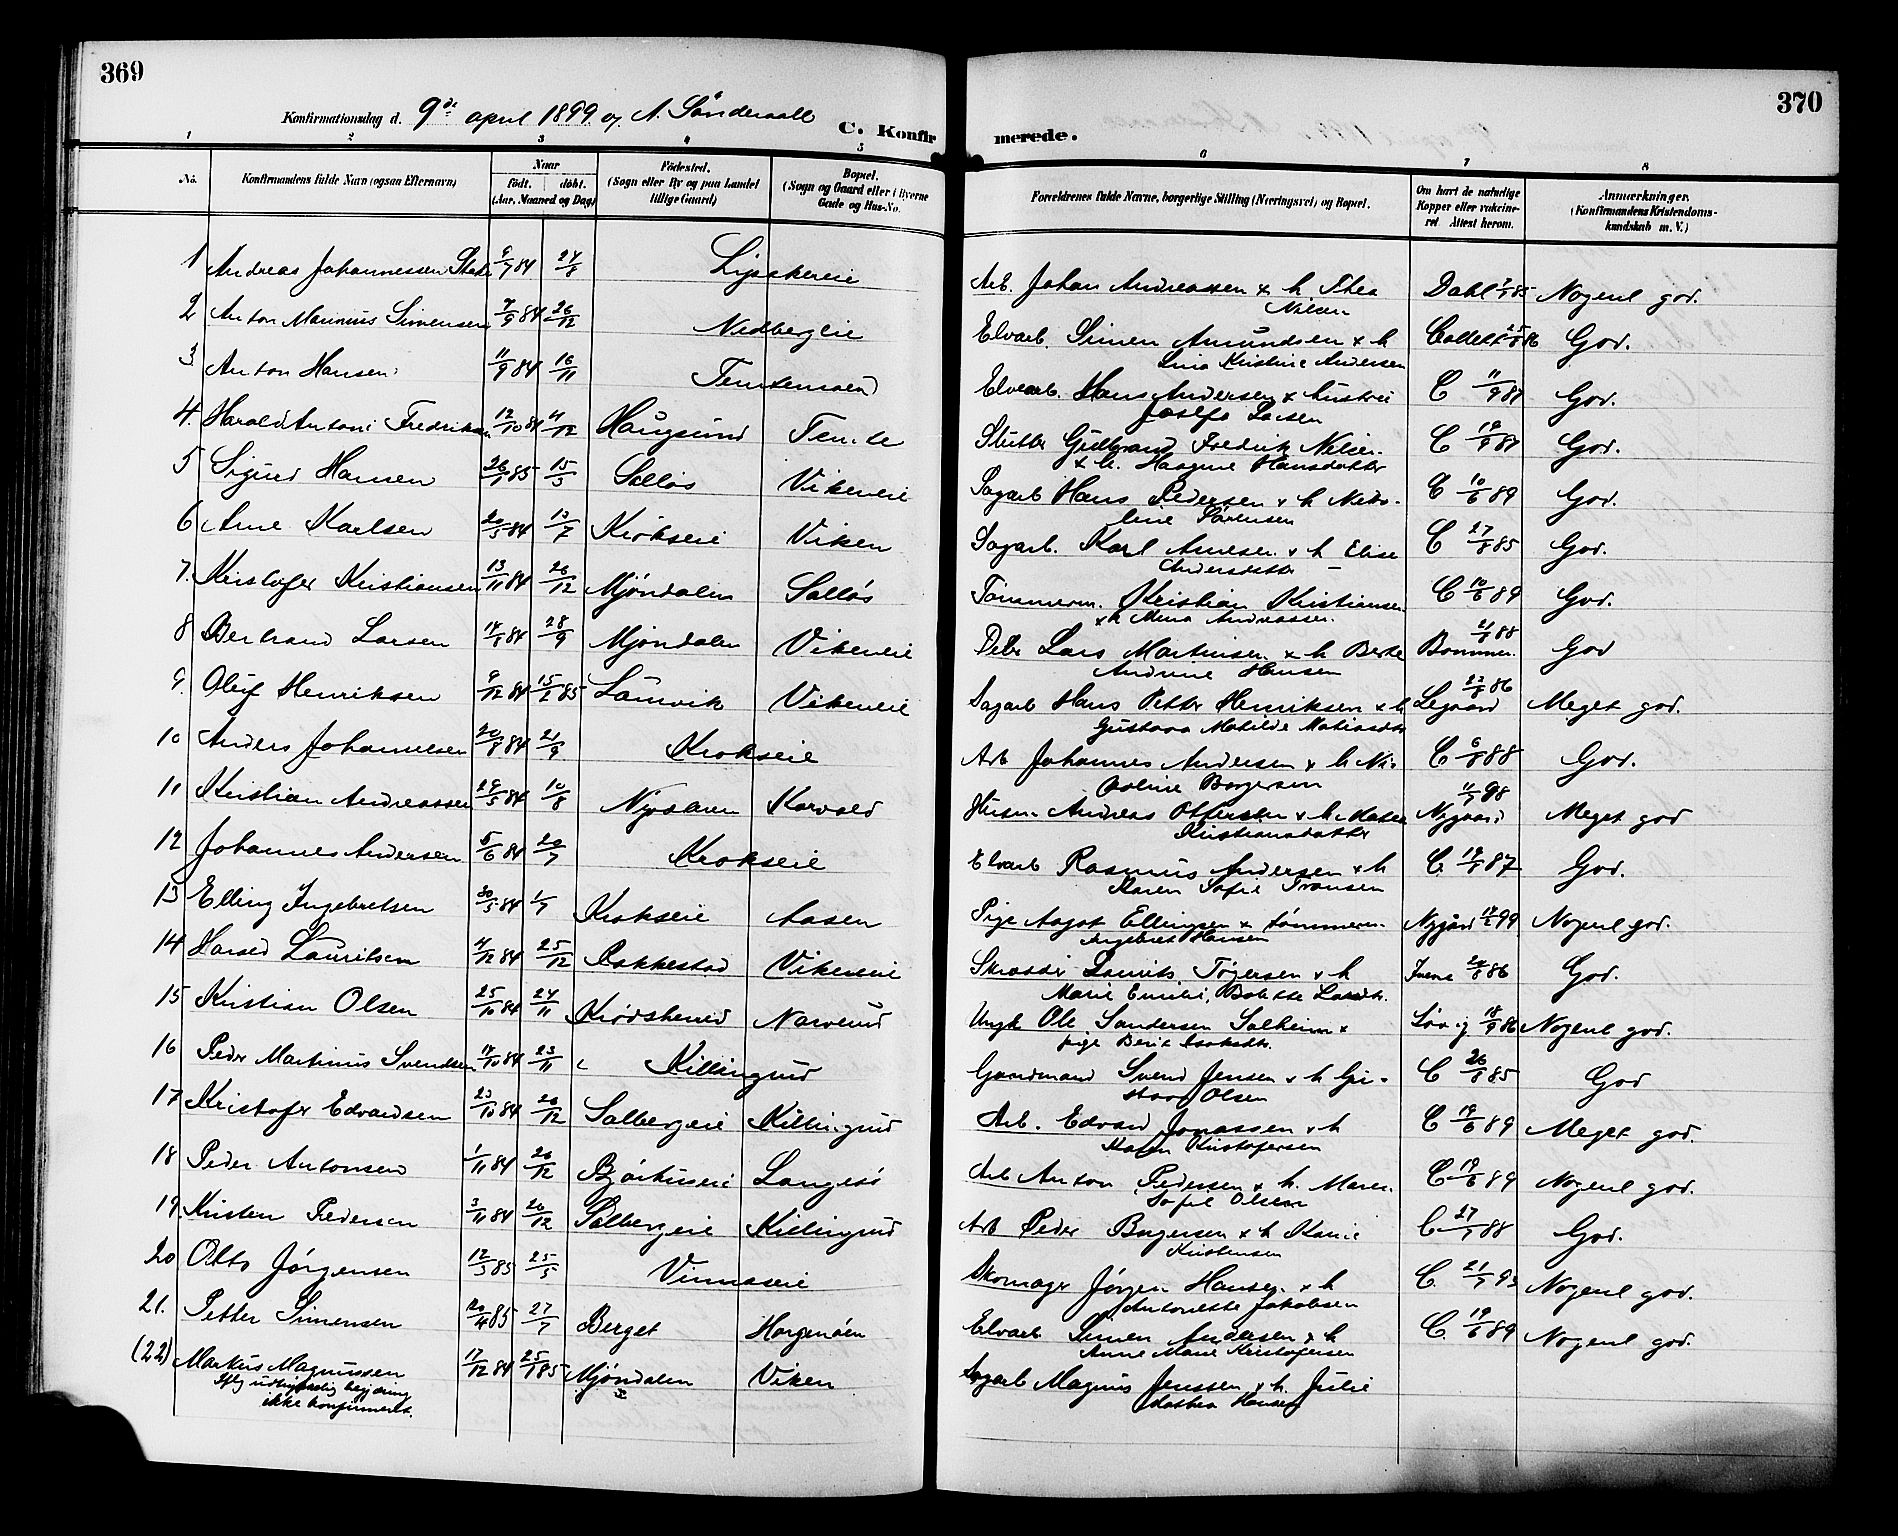 369
370
Konfirmationsdag d. 9de april 1899 og A. Söndervold
C. Konfirmerede.
1 2 3 4 5 6 7 8
No. Konfirmandens fulde Navn (ogsaa Efternavn) Naar født. døbt. (Aar, Maaned og Dag) Fødested. (Sogn eller By og paa Landet tillige Gaard) Bopæl. (Sogn og Gaard eller i Byerne Gade og Hus-No. Forældrenes fulde Navne, borgerlige Stilling (Næringsvei) og Bopæl. Om havt de naturlige Kopper eller vakcineret. Attest herom. Anmærkninger. (Konfirmandens Kristendomskundskab m. V.)
1 Andreas Johannessen 84 24/8 Arb. Johan Andreassen & h. Thea Nilsen Dahl Nogenl god.
2 Anton Marinius Simensen 7/9 84 26/12 Nedbergeie Elvarb. Simen Amundsen & h. Lina Kristine Andersen God.
3 Anton Hansen 11/9 84 16/11 Temtemoen Elvearb. Hans Andersen & Josefa Larsen C 11/9 87 God.
4. Harald Antoni Fredriksen 12/10 84 4/12 Haugsund Temte Gulbrand Fredrik Nilsen & h. Hansdatter C 19/9 87 God.
5 Sigurd Hansen 26/1 85 15/3 Solløs Vikeneie Sagarb Hans Pedersen & h. Nicoline Sørensen C 10/6 89 God.
6 Arne Karlsen 20/5 84 13/7 Krokseie Viken Sagarb. Karl Arnesen & h. Elise Andersdatter C 27/8 85 God.
7. Kristofer Kristiansen 13/11 84 26/12 Mjöndalen Solløs Tömmerm. Kristian Kristiansen & h. Mina Andreassen C 10/6 89 God.
8 Bertrand Larsen 84 28/9 Mjöndalen Vikeneie Lars Martinsen & h. Berte Andrine Hansen 21/8 88 God
9. Oluf Henriksen 9/12 84 15/2 85 Laurvik Vikeneie Sagarb Hans Petter Henriksen & h. Gustava Matilde Matiasdtr 86 Meget god.
10 Anders Johannesen 20/8 84 21/9 Krokseie Arb Johannes Andersen & h. Nicoline Borgersen C 88 God.
11 Kristian Andreassen 29/5 84 10/8 Korvald Husm. Andreas Ottersen & h. Maren Kristiansdatter Nygaard 98 Meget god
12 Johannes Andersen 5/6 84 20/7 Krokseie Elvarb Rasmus Andersen & h. Karen Sofie Transen C. 87 God.
13 Elling Ingebretsen 30/5 84 1/7 Krokseie Aasen Pige Aagot Ellingsen & tømmerm. Ingebret Hansen Nygård 99 Nogenl god.
14 Harald Lauritsen 4/12 84 25/12 Rakkestad Vikeneie Skrædder Laurits Tøgersen & h. Marie Emilie Bolette 86 God.
15 Kristian Olsen 25/10 84 24/11 Krødsherred Narverud Ungk Ole Sandersen Solheim & pige Berit 86 Nogenl god.
16 Peder Martinius Svendsen 84 23/11 Killingrud Gaardmand Svend Jensen & h. Gustava Olsen C 26/8 85 God
17 Kristofer Edvardsen 23/10 84 26/12 Solbergeie Killingrud Arb. Edvard Jonassen & h. Karen Kristofersen C 19/6 89 Meget god.
18 Peder Antonsen 1/11 84 26/12 Langesö Arb Anton Pedersen & h. Maren Sofie Olsen C 19/6 89 Nogenl god.
19. Kristen Pedersen 3/11 84 26/12 Solbergeie Killingrud Arb Peder Borgersen & h. Karine Kristensen C 27/7 88 God.
20 Otto Jörgensen 12/3 85 25/5 Vinnaseie Skomager Jörgen Hansen & h. Antonette Jakobsen C. 21/7 93 Nogenl god.
21. Petter Simensen 20/4 85 27/7 Berget Horgenöen Elvarb Simen Andersen & h. Anne Marie Kristofersen C. 19/6 89 Nogenl god.
(22) Markus Magnussen 17/12 84 25/1 85 Mjöndalen Viken Sagarb Magnus Jenssen & h. Julie Mathea Hansen
ikke konfirmeret.